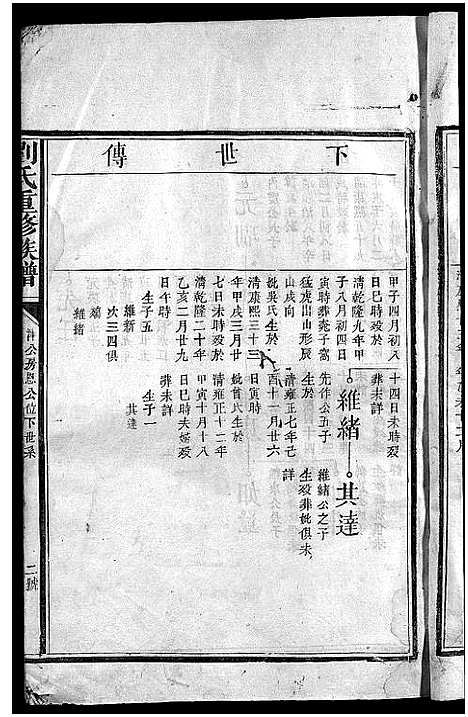 下世傳
甲子四月初八
日巳時歿於
清乾隆九年甲
子八月初四日
寅時葬菟子窩
猛虎出山形辰
山戌向
妣吳氏生於
清康熙三十三
年甲戌三月廿
七日未時歿於
清乾隆二十年
乙亥二月廿九
日午時
生子五
維新
次三四俱
殤
維緒
十四日未時歿
葬未詳
維緒
先作公五子
生於
清雍正七年己
酉十一月廿六
日寅時
妣曾氏生於
清雍正十二年
甲寅十月十八
日巳時夫婦歿
葬未詳
生子一
其達
其達
維緒公之子
生歿葬妣俱未
詳
劉氏重修族譜
公房恩公位下世系
二號